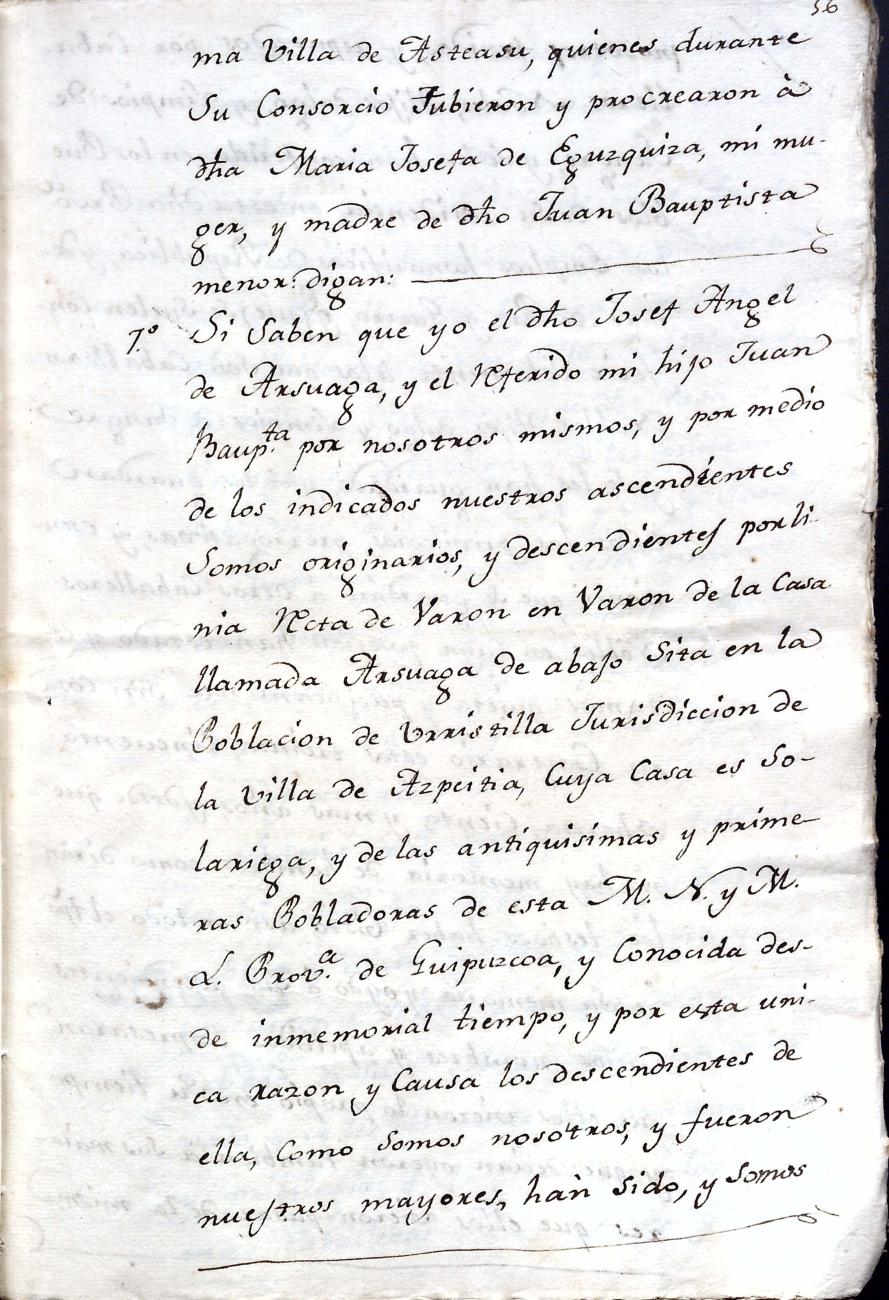 56
ma Villa de Asteasu, quienes durante
Su Consorcio Tubieron y procrearon à
dha Maria Josefa de Eguzquiza, mi mu-
ger, y madre de dho Juan Bauptista
menor: digan:
7.º Si Saben que yo el dho Josef Angel
de Arsuaga, y el Referido mi hijo Juan
Baup.ta por nosotros mismos, y por medio
de los indicados nuestros ascendientes
Somos originarios, y descendientes por li-
nia Recta de Varon en Varon de la Casa
llamada Arsuaga de abajo Sita en la
Poblacion de Urristilla Jurisdiccion de
la Villa de Azpeitia, Cuya Casa es So-
lariega, y de las antiquisimas y prime-
ras Pobladoras de esta M. N. y M.
L. Prov.a de Guipuzcoa, y Conocida des-
de inmemorial tiempo, y por esta uni-
ca razon y Causa los descendientes de
ella, Como Somos nosotros, y fueron
nuestros mayores, han Sido, y Somos